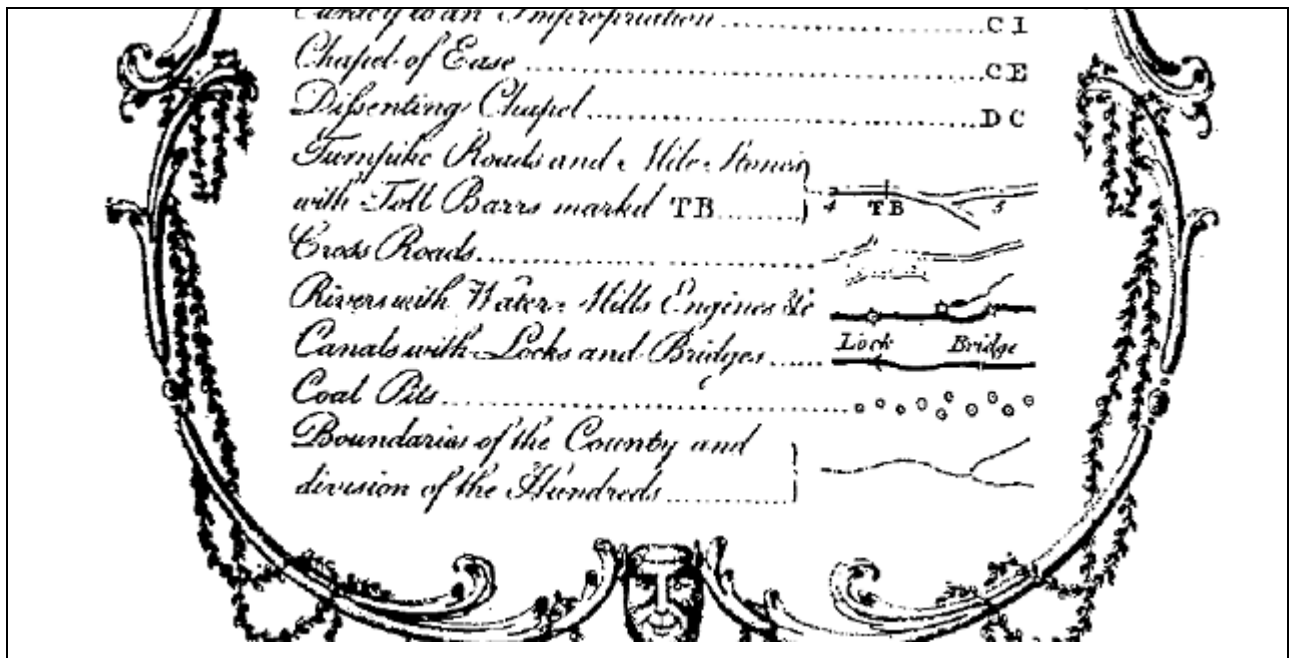 Curacy to an Impropriation C I
Chapel of Ease C E
Dissenting Chapel D C
Turnpike Roads and Mile Stones
with Toll Barrs markd TB
4 TB 5
Cross Roads
Rivers with Water Mills Engines &c
Canals with Locks and Bridges Lock Bridge
Coal Pits
Boundaries of the County and
division of the Hundreds